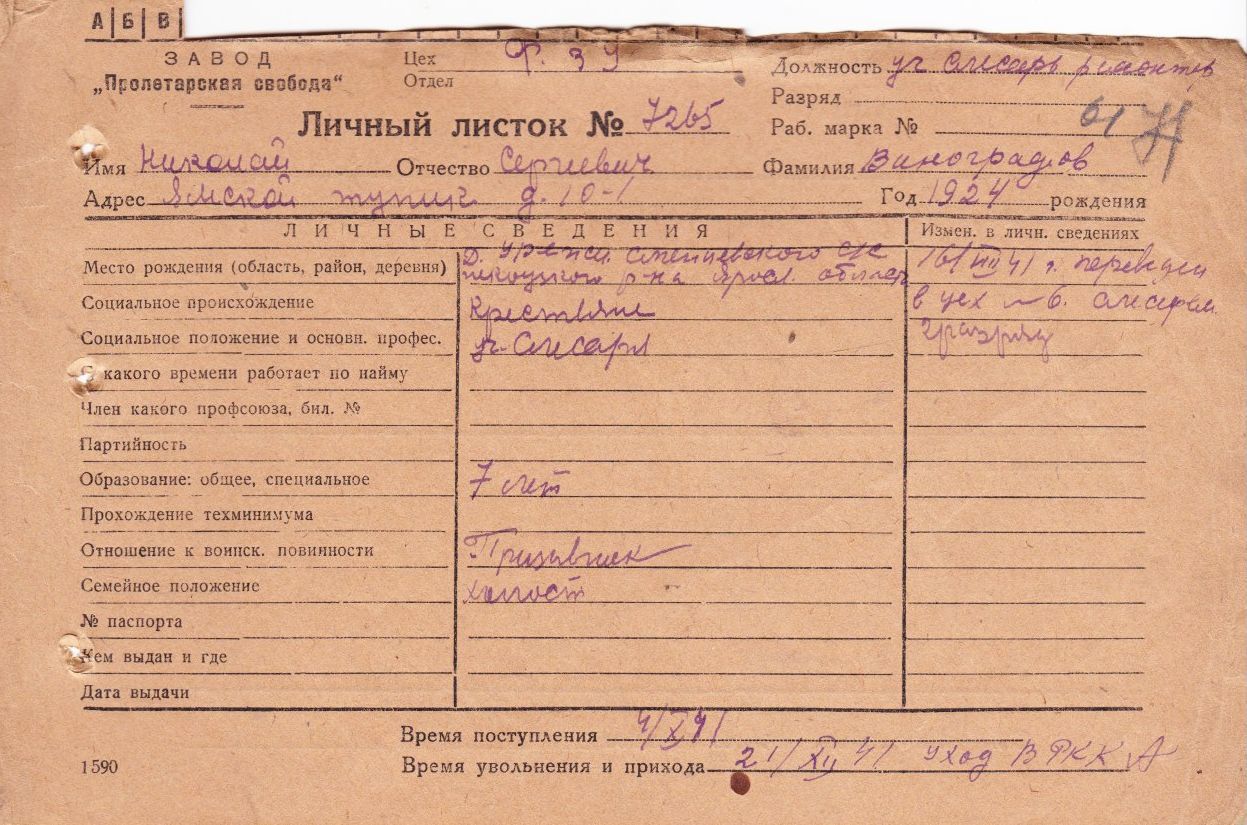 А Б В
ЗАВОД
„Пролетарская свобода“
Цех Ф. З У
Отдел
Должность уч слесарь ремонтн
Разряд
Раб. марка № 61
Личный листок № 7265
Имя Николай Отчество Сергеевич Фамилия Виноградов
Адрес Ямской тупик д. 10-1 Год 1924 рождения
ЛИЧНЫЕ СВЕДЕНИЯ Измен. в личн. сведениях
Место рождения (область, район, деревня) Д. с/с
р-на Яросл. области
16/XII 41 г. переведен
Социальное происхождение крестьяне в цех № 6. слесарем
Социальное положение и основн. профес. уч. слесаря 2 разряд
С какого времени работает по найму
Член какого профсоюза, бил. №
Партийность
Образование: общее, специальное 7 лет
Прохождение техминимума
Отношение к воинск. повинности Призывник
Семейное положение холост
№ паспорта
Кем выдан и где
Дата выдачи
Время поступления 4/X 41
1590 Время увольнения и прихода 21/XII 41 уход В РККА